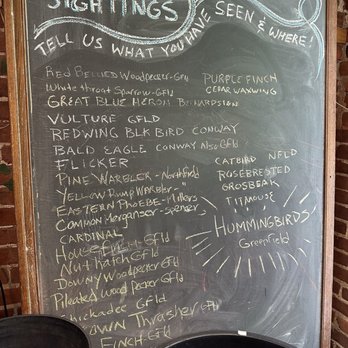 SIGHTINGS
TELL US WHAT YOU HAVE SEEN & WHERE!
Red Bellied Woodpecker-Grn
White throat Sparrow-GFld
GREAT BLUE HERON BERNARDSTON
VULTURE GFLD
REDWING BLK BIRD CONWAY
BALD EAGLE CONWAY Also Gfld
FLICKER
PINE WARBLER-Northfield
Yellow Rump Warbler-"
"EASTERN Phoebe-Millers
Common Merganser-spencer
CARDINAL
House Finch Gfld
Nuthatch Gfld
Downy Woodpecker Gfld
Pileated Wood pecker Gfld
Chickadee Gfld
Brown Thrasher Gfld
FINCH Gfld
PURPLE FINCH
CEDAR WAXWING
CATBIRD NFLD
ROSEBRESTED
GROSBEAK
TITMOUSE
HUMMINGBIRDS
Greenfield